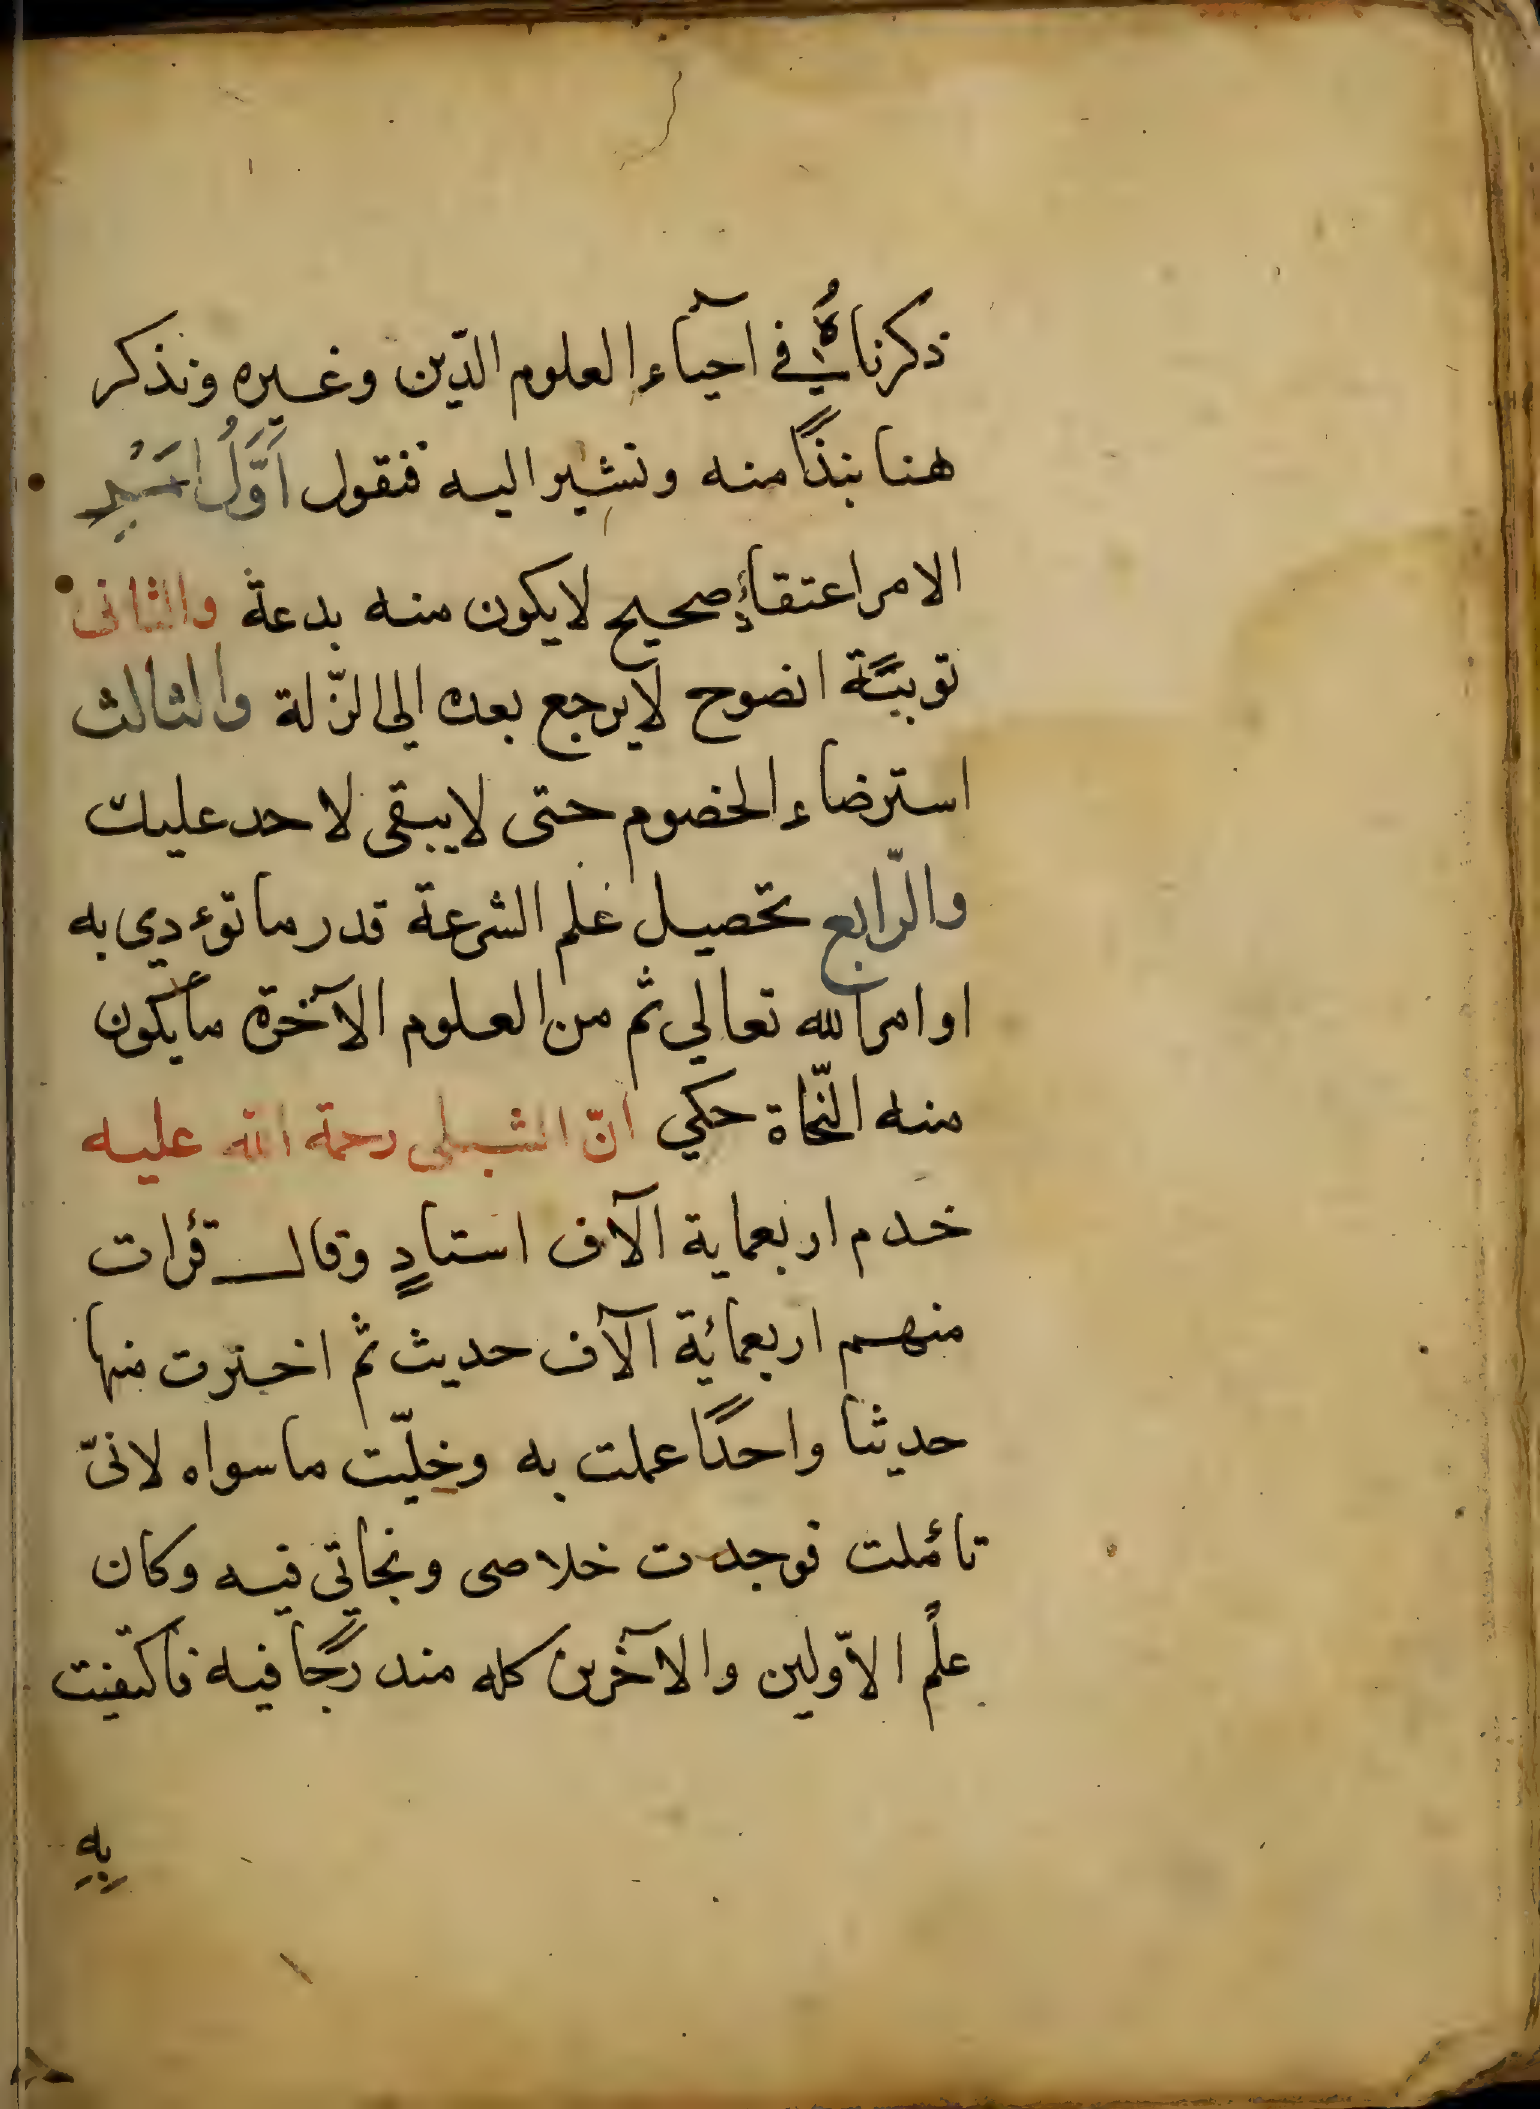 ذكرناهُ في احيآء العلوم الدّين وغيره ونذكر
هنا نبذًا منه ونشير اليه فنقول اَوَّلُ
الامر اعتقادٍ صحيح لا يكون منه بدعة والثانى
توبيةً انصوح لا يرجع بعده الى الزّلة والثالث
استرضاء الخصوم حتى لا يبقى لاحد عليك
والرّابع تحصيل علم الشرعة قدر ما تؤدي به
اوامر الله تعالي ثم من العلوم الآخرة ما يكون
منه النّجاة حكي انّ الشبلى رحمة الله عليه
خدم اربعماية الآف استادٍ وقال قرأت
منهم اربعمائة الآف حديث ثم اخترت منها
حديثا واحدًا عملت به وخلّيت ما سواه لانّى
تاءملت فوجدت خلاصى ونجاتي فيه وكان
علُم الاوّلين والآخرين كله مندرجًا فيه فاكتفيت
بِهِ